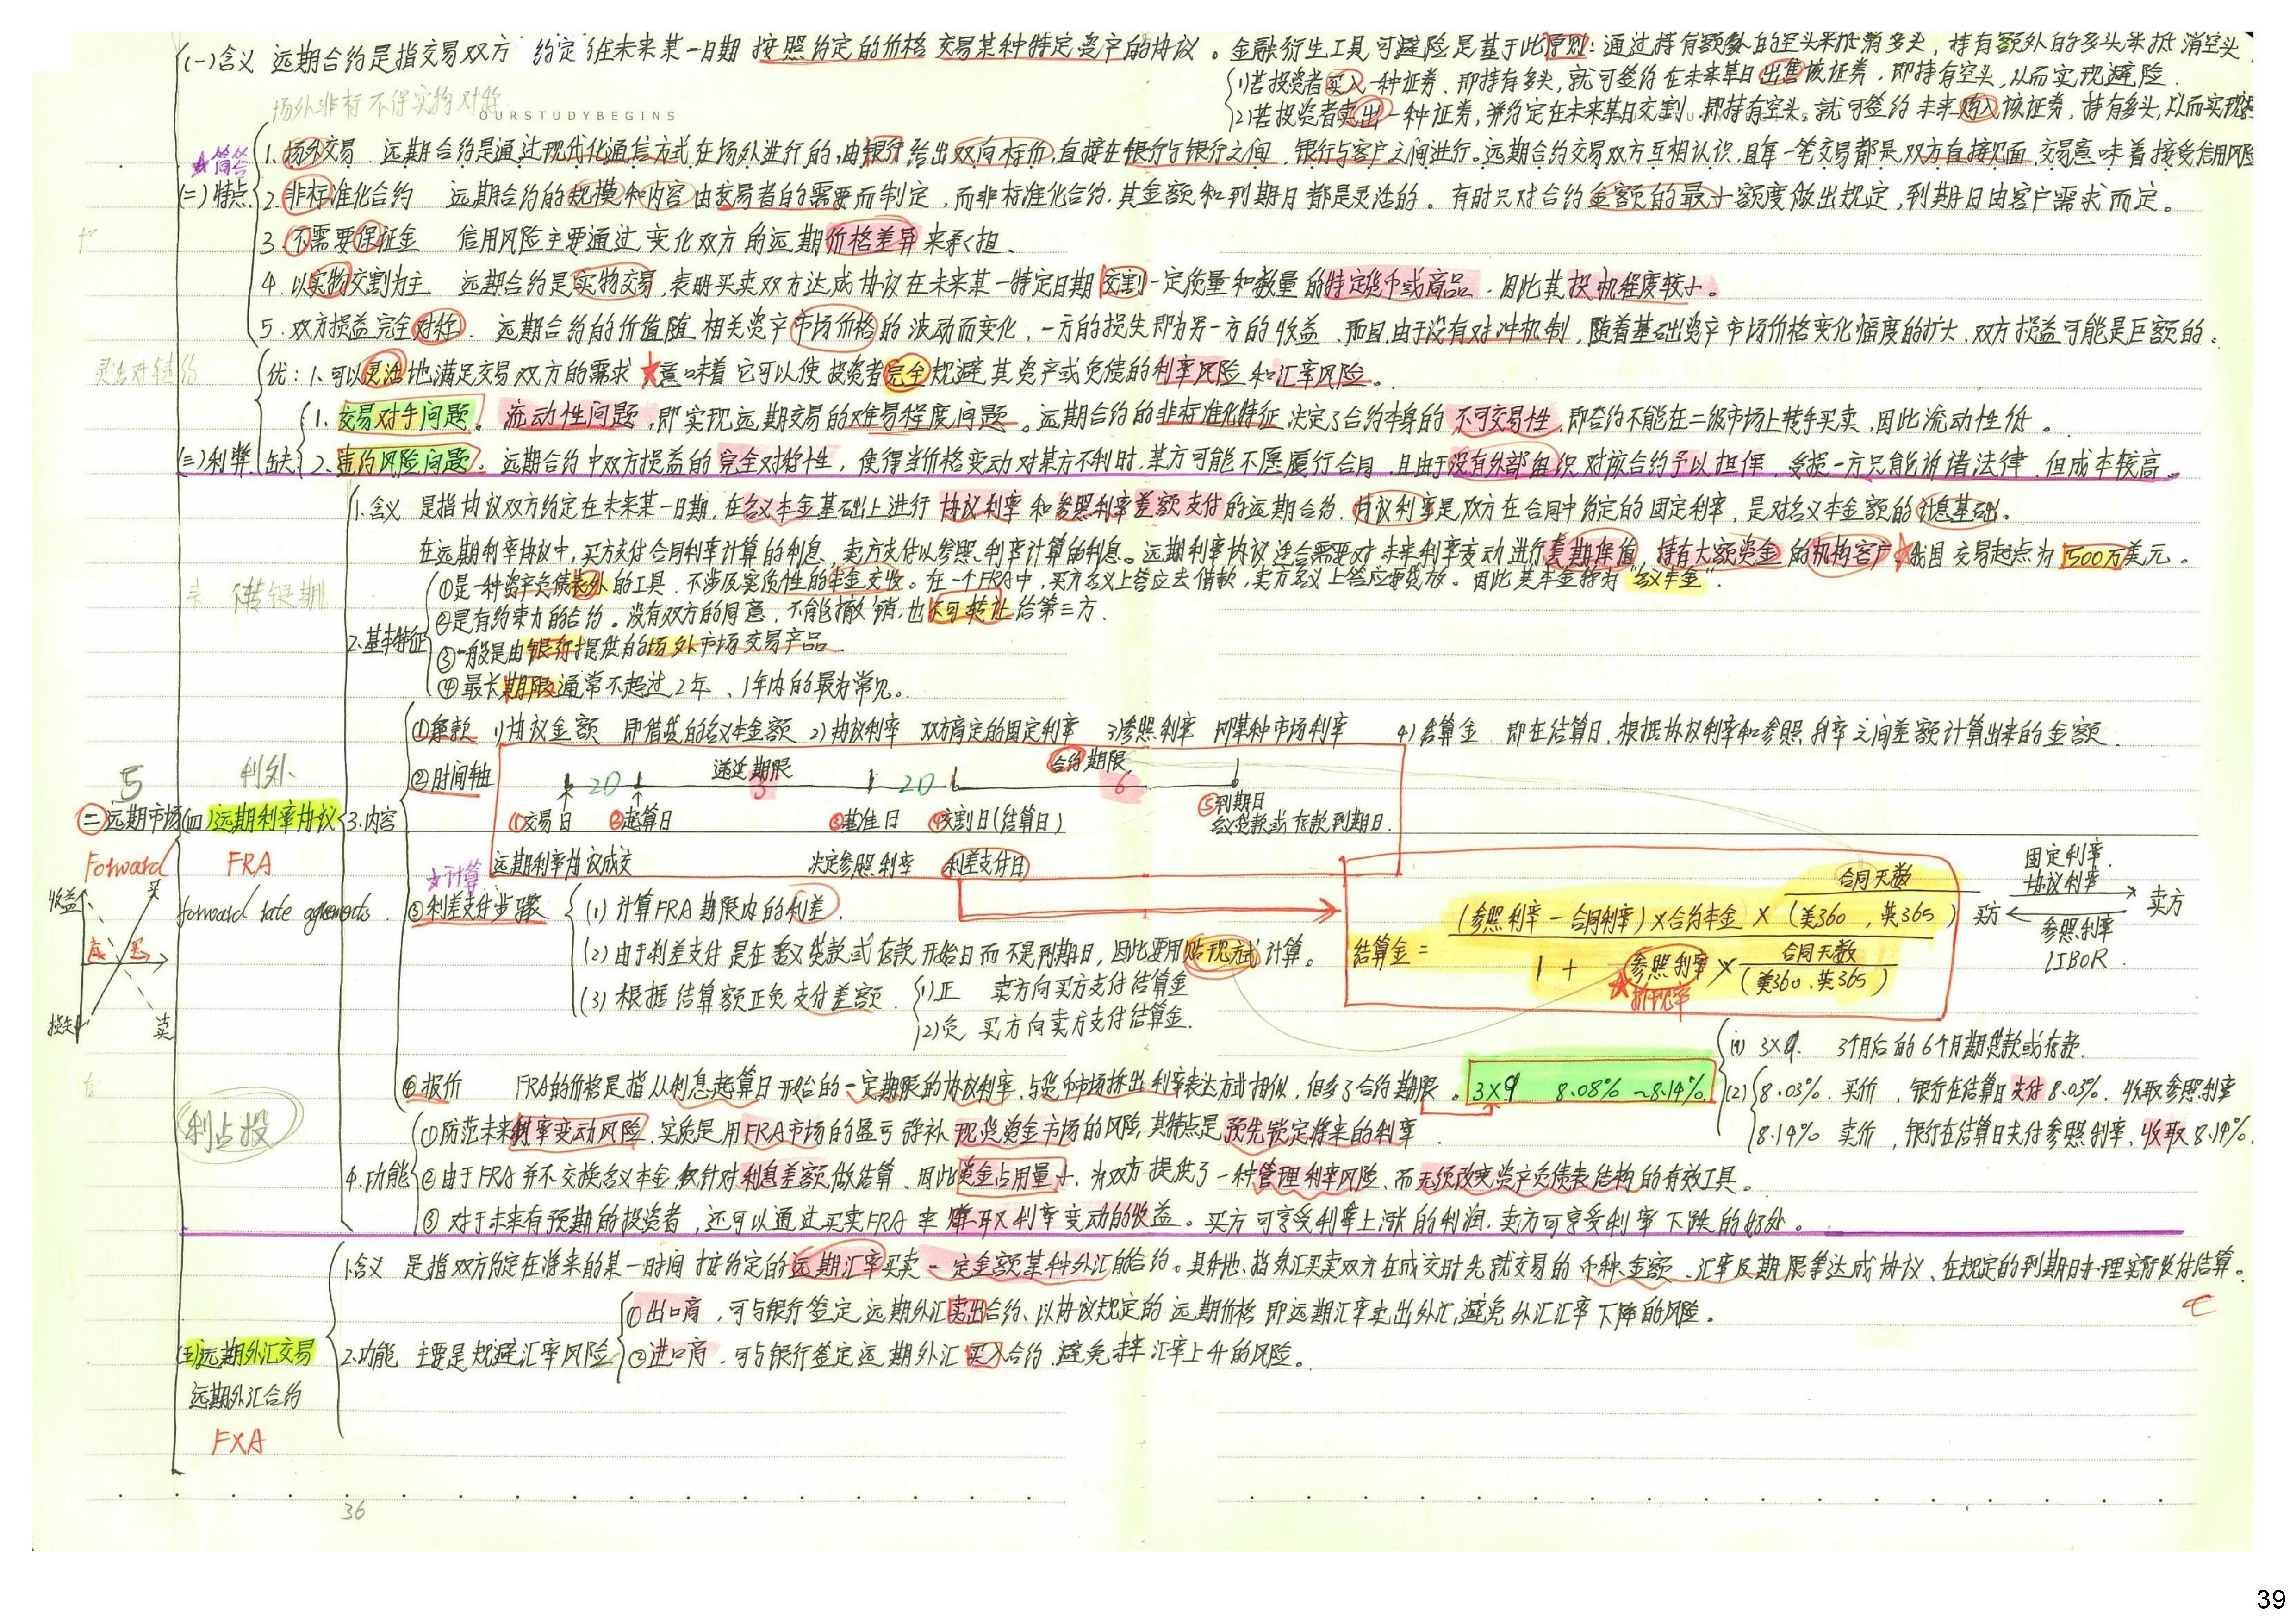 (一)含义 远期合约是指交易双方 约定在未来某一日期 按照约定的价格 交易某种特定资产的协议。金融衍生工具可避险是基于此原则：通过持有额外的空头来抵消多头，持有额外的多头来抵消空头
(1)若投资者买入一种证券，即持有多头，就可签约在未来某日出售该证券，即持有空头，从而实现避险
场外非标不保实物对称
OURSTUDYBEGINS
(2)若投资者卖出一种证券，并约定在未来某日交割，即持有空头，就可签约未来购入该证券，持有多头，从而实现
★简答
1.场外交易 远期合约是通过现代化通信方式在场外进行的，由银行给出双向标价，直接在银行与银行之间，银行与客户之间进行。远期合约交易双方互相认识，且每一笔交易都是双方直接见面，交易意味着接受信用风险
(二)特点
2.非标准化合约 远期合约的规模和内容由交易者的需要而制定，而非标准化合约，其金额和到期日都是灵活的。有时只对合约金额的最小额度做出规定，到期日由客户需求而定。
3.不需要保证金 信用风险主要通过变化双方的远期价格差异来承担.
4.以实物交割为主 远期合约是实物交易，表明买卖双方达成协议在未来某一特定日期交割一定质量和数量的特定货币或商品，因此其投机程度较小。
5.双方损益完全对称. 远期合约的价值随相关资产市场价格的波动而变化，一方的损失即为另一方的收益，而且，由于没有对冲机制，随着基础资产市场价格变化幅度的扩大，双方损益可能是巨额的。
优：1.可以灵活地满足交易双方的需求 ★意味着它可以使投资者完全规避其资产或负债的利率风险和汇率风险。
1.交易对手问题。流动性问题，即实现远期交易的难易程度问题。远期合约的非标准化特征决定了合约本身的不可交易性，即合约不能在二级市场上转手买卖，因此流动性低。
(三)利弊
缺 2.违约风险问题。远期合约中双方损益的完全对称性，使得当价格变动对某方不利时，某方可能不愿履行合同，且由于没有外部组织对该合约予以担保，受损一方只能诉诸法律，但成本较高。
1.含义 是指协议双方约定在未来某一日期，在名义本金基础上进行协议利率和参照利率差额支付的远期合约，协议利率是双方在合同中约定的固定利率，是对名义本金额的计息基础.
在远期利率协议中，买方支付合同利率计算的利息，卖方支付以参照利率计算的利息。远期利率协议适合需要对未来利率变动进行套期保值，持有大额资金的机构客户★我国交易起点为500万美元。
①是一种资产负债表外的工具，不涉及实质性的本金交收。在一个FRA中，买方名义上答应去借款，卖方名义上答应去贷放。因此其本金称为“名义本金”.
②是有约束力的合约。没有双方的同意，不能撤销，也不可转让给第三方.
2.基本特征
③一般是由银行提供的场外市场交易产品.
④最长期限通常不超过2年、1年内的最为常见。
①条款 1)协议金额 即借贷的名义本金额 2)协议利率 双方商定的固定利率 3)参照利率 即某种市场利率 4)结算金 即在结算日，根据协议利率和参照利率之间差额计算出来的金额.
②时间轴 2D 递延期限 3 2D 合约期限 6
5 利外
①交易日 ②起算日 ③基准日 ④交割日(结算日) ⑤到期日
名义贷款或存款到期日.
二 远期市场 (四)远期利率协议 3.内容
Forward FRA
forward rate agreements
远期利率协议成交 决定参照利率 利差支付日
★计算
③利差支付步骤
(1)计算FRA期限内的利差.
(2)由于利差支付是在名义贷款或存款开始日而不是到期日，因此要用贴现方式计算。
(3)根据结算额正负支付差额.
(1)正 卖方向买方支付结算金
(2)负 买方向卖方支付结算金.
收益
买
卖 买
损失
卖
结算金=
(参照利率-合同利率)×合约本金×合同天数/(美360，英365)
1+参照利率×合同天数/(美360、英365)
★折现率
固定利率.
协议利率
买方 卖方
参照利率
LIBOR
④报价 FRA的价格是指从利息起算日开始的一定期限的协议利率，与货币市场拆出利率表达方式相似，但多了合约期限。 3×9 8.08%~8.14%
(1) 3×9. 3个月后的6个月期贷款或存款.
(2) 8.03% 买价，银行在结算日支付8.03%，收取参照利率
8.14% 卖价，银行在结算日支付参照利率，收取8.14%.
利占投
①防范未来利率变动风险，实质是用FRA市场的盈亏弥补现货资金市场的风险，其特点是预先锁定将来的利率.
4.功能
②由于FRA并不交换名义本金，仅针对利息差额做结算，因此资金占用量小，为双方提供了一种管理利率风险、而无须改变资产负债表结构的有效工具。
③对于未来有预期的投资者，还可以通过买卖FRA来赚取利率变动的收益。买方可享受利率上涨的利润，卖方可享受利率下跌的好处。
1.含义 是指双方约定在将来的某一时间按约定的远期汇率买卖一定金额某种外汇的合约。具体地，指外汇买卖双方在成交时先就交易的币种、金额、汇率及期限等达成协议，在规定的到期日办理实际收付结算。
①出口商，可与银行签定远期外汇卖出合约，以协议规定的远期价格即远期汇率卖出外汇，避免外汇汇率下降的风险。
(五)远期外汇交易
2.功能 主要是规避汇率风险
②进口商，可与银行签定远期外汇买入合约，避免未来汇率上升的风险。
远期外汇合约
FXA
36
39